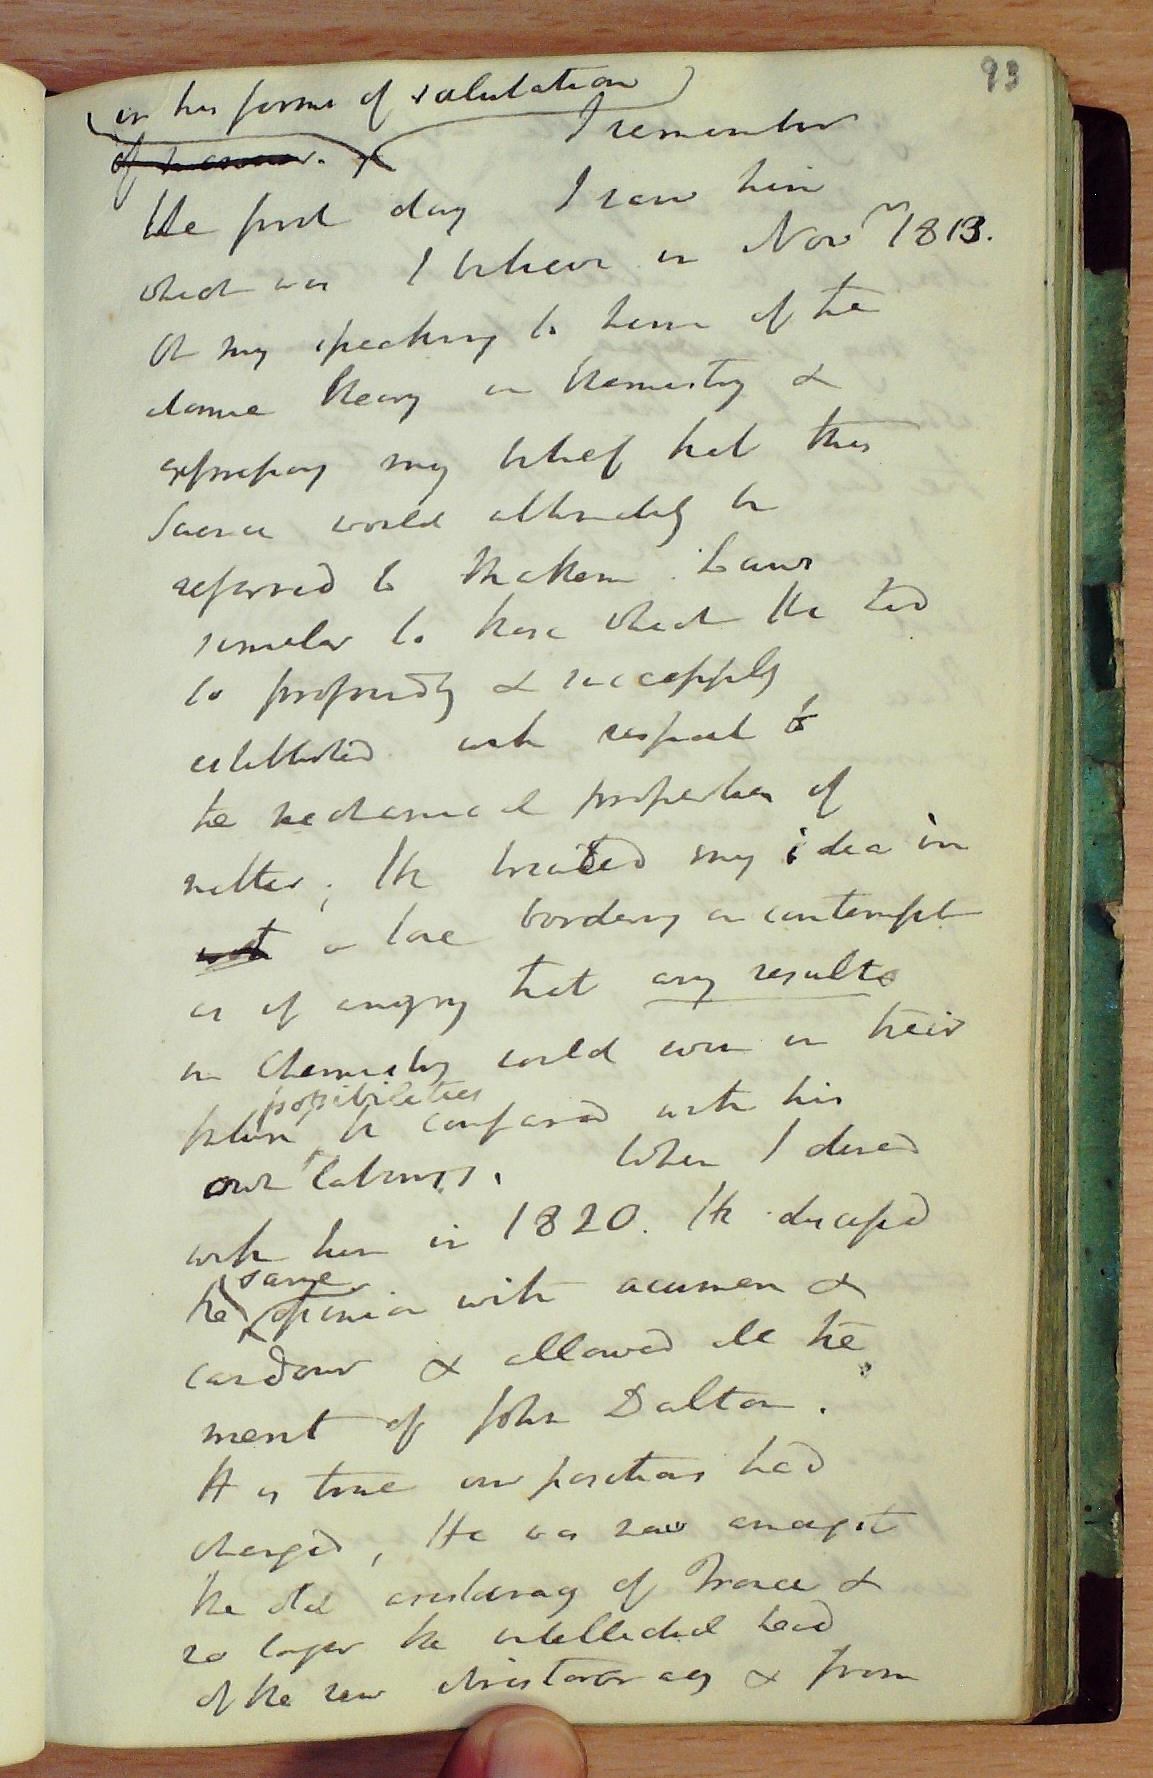 93
in his forms of salutation
of manner. I remember
the first day I saw him
which was I believe in Novr 1813.
On my speaking to him of the
atomic theory in Chemistry &
expressing my belief that this
Science would ultimately be
referred to Mathem. Laws
similar to those which He had
so profoundly & successfully
established with respect to
the mechanical properties of
matter; He treated my idea in
a tone bordering on contempt
as if angry that any results
in Chemistry could even in their
possibilities
future be compared with his
own labours. When I dined
with him in 1820. He discussed
same
the opinion with acumen &
candour & allowed all the
merit of John Dalton.
It is true our positions had
changed, He was now amongst
the old aristocracy of France &
no longer the intellectual head
of the new aristocracy & from